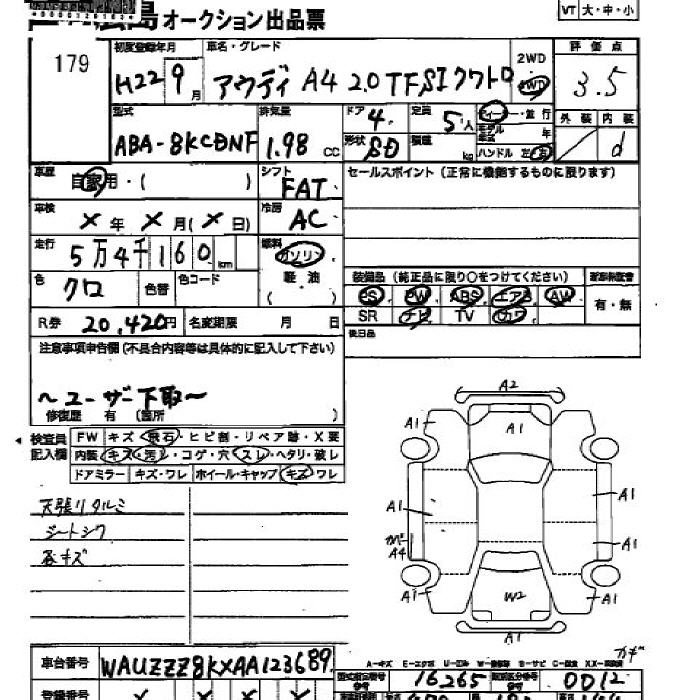 オークション出品票
VT 大・中・小
179
初度登録年月
H22 9月
車名・グレード
アウディ A4 2.0 TFSIクワトロ
2WD
4WD
評価点
3.5
型式
ABA-8KCDNF
排気量
1.98 CC
ドア 4
形状 SD
定員 5人
積載 kg
ディーラー・並行
モデル年式 年
ハンドル 左 右
外装 内装
d
車歴
自家用・( )
シフト
FAT
セールスポイント(正常に機能するものに限ります)
車検
X年 X月(X日)
冷房
AC
走行
5万4千160km
燃料
ガソリン
軽・油
( )
色
クロ
色替
色コード
装備品(純正品に限り○をつけてください)
PS PW ABS エアB AW
SR ナビ TV カワ
有・無
R券 20,420円
名変期限 月 日
後日品
注意事項申告欄(不具合内容等は具体的に記入して下さい)
〜ユーザー下取〜
修復歴 有(箇所 )
検査員
記入欄
FW キズ・飛石・ヒビ割・リペア跡・X要
内装 キズ・汚レ・コゲ・穴・スレ・ヘタリ・破レ
ドアミラー キズ・ワレ ホイール・キャップ キズ・ワレ
天張リタルミ
シートシワ
各キズ
A2
A1
A1
A1
A1
A1
A1
A1
A4
A1
W2
A1
A1
車台番号
WAUZZZ8KXAA123689
A-キズ E-エクボ
16265
0012
登録番号